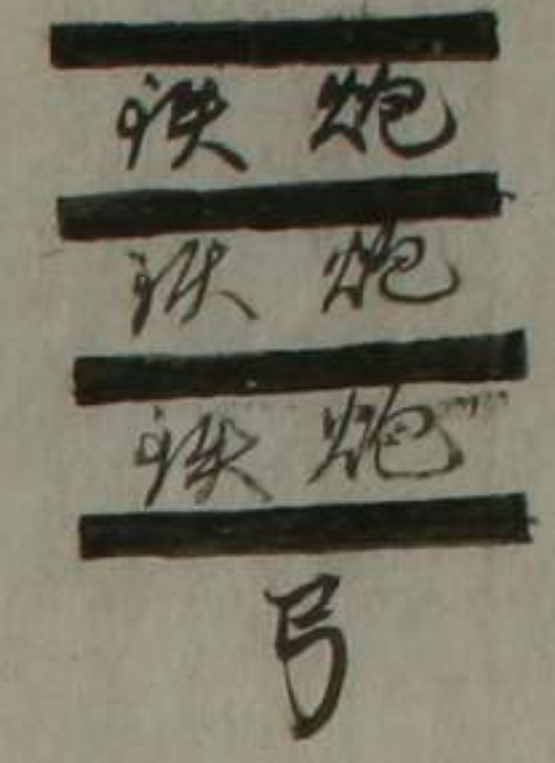 鉄炮
鉄炮
鉄炮
弓